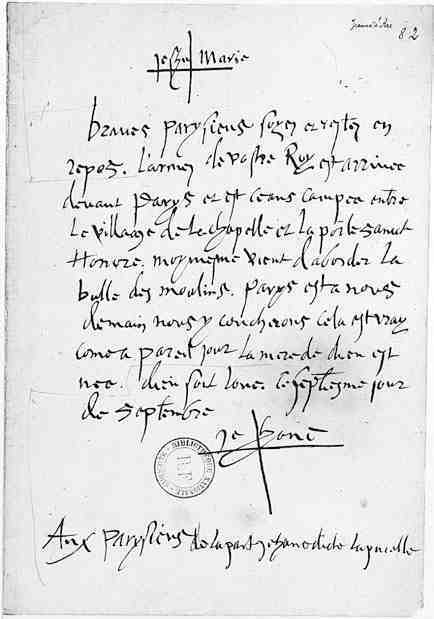 Jeanne d'Arc
82
Jesus Marie
braves parysiens soyez et restez en
repos. L'armee de vostre Roy est arrivee
devant parys et est ceans campee entre
Le village de Lachapelle et la porte Sainct
Honore. moymesme vient d'aborder La
butte des moulins. parys est a nous
demain nous y coucherons cela est vray
come a pareil jour La mere de dieu est
nee. dieu soit loue. ce septiesme jour
de Septembre
BIBLIOTHEQUE NATIONALE
Aux parysiens de la part Jehane dicte La pucelle